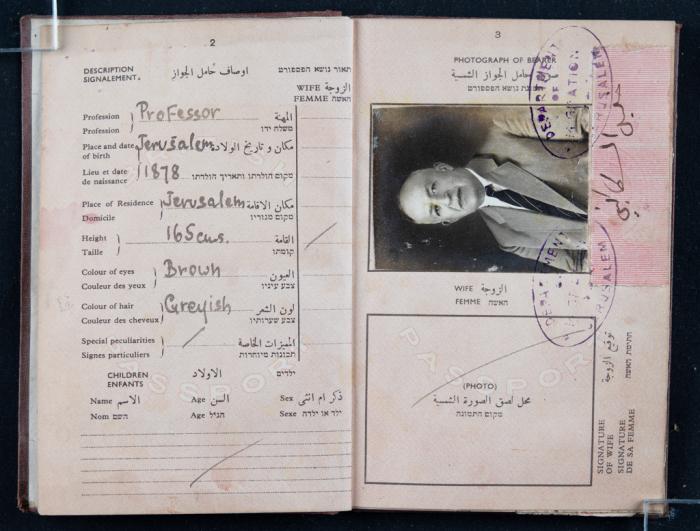 2
DESCRIPTION
SIGNALEMENT.
اوصاف حامل الجواز
תאור נושא הפספורט
WIFE الزوجة
FEMME האשה
Profession
Profession
Professor
المهنة
משלח ידו
Place and date
of birth
Jerusalem
مكان و تاريخ الولادة
Lieu et date
de naissance
1878
מקום הולדתו ותאריך הולדתו
Place of Residence
Domicile
Jerusalem
مكان الاقامة
מקום מגוריו
Height
Taille
165 cms.
القامة
קומתו
Colour of eyes
Couleur des yeux
Brown
العيون
צבע עיניו
Colour of hair
Couleur des cheveux
Greyish
لون الشعر
צבע שערותיו
Special peculiarities
Signes particuliers
المميزات الخاصة
תכונות מיוחדות
CHILDREN
ENFANTS
الاولاد
ילדים
Name الاسم
Age السن
Sex ذكر ام انثى
Nom השם
Age הגיל
Sexe ילד או ילדה
PASSPORT
3
PHOTOGRAPH OF BEARER
حامل الجواز الشمسية
תמונת נושא הפספורט
DEPARTMENT OF IMMIGRATION JERUSALEM
خليل السكاكيني
WIFE الزوجة
FEMME האשה
DEPARTMENT OF JERUSALEM
PASSPORT
(PHOTO)
محل لصق الصورة الشمسية
מקום התמונה
SIGNATURE
OF WIFE
SIGNATURE
DE SA FEMME
توقيع الزوجة
חתימת האשה